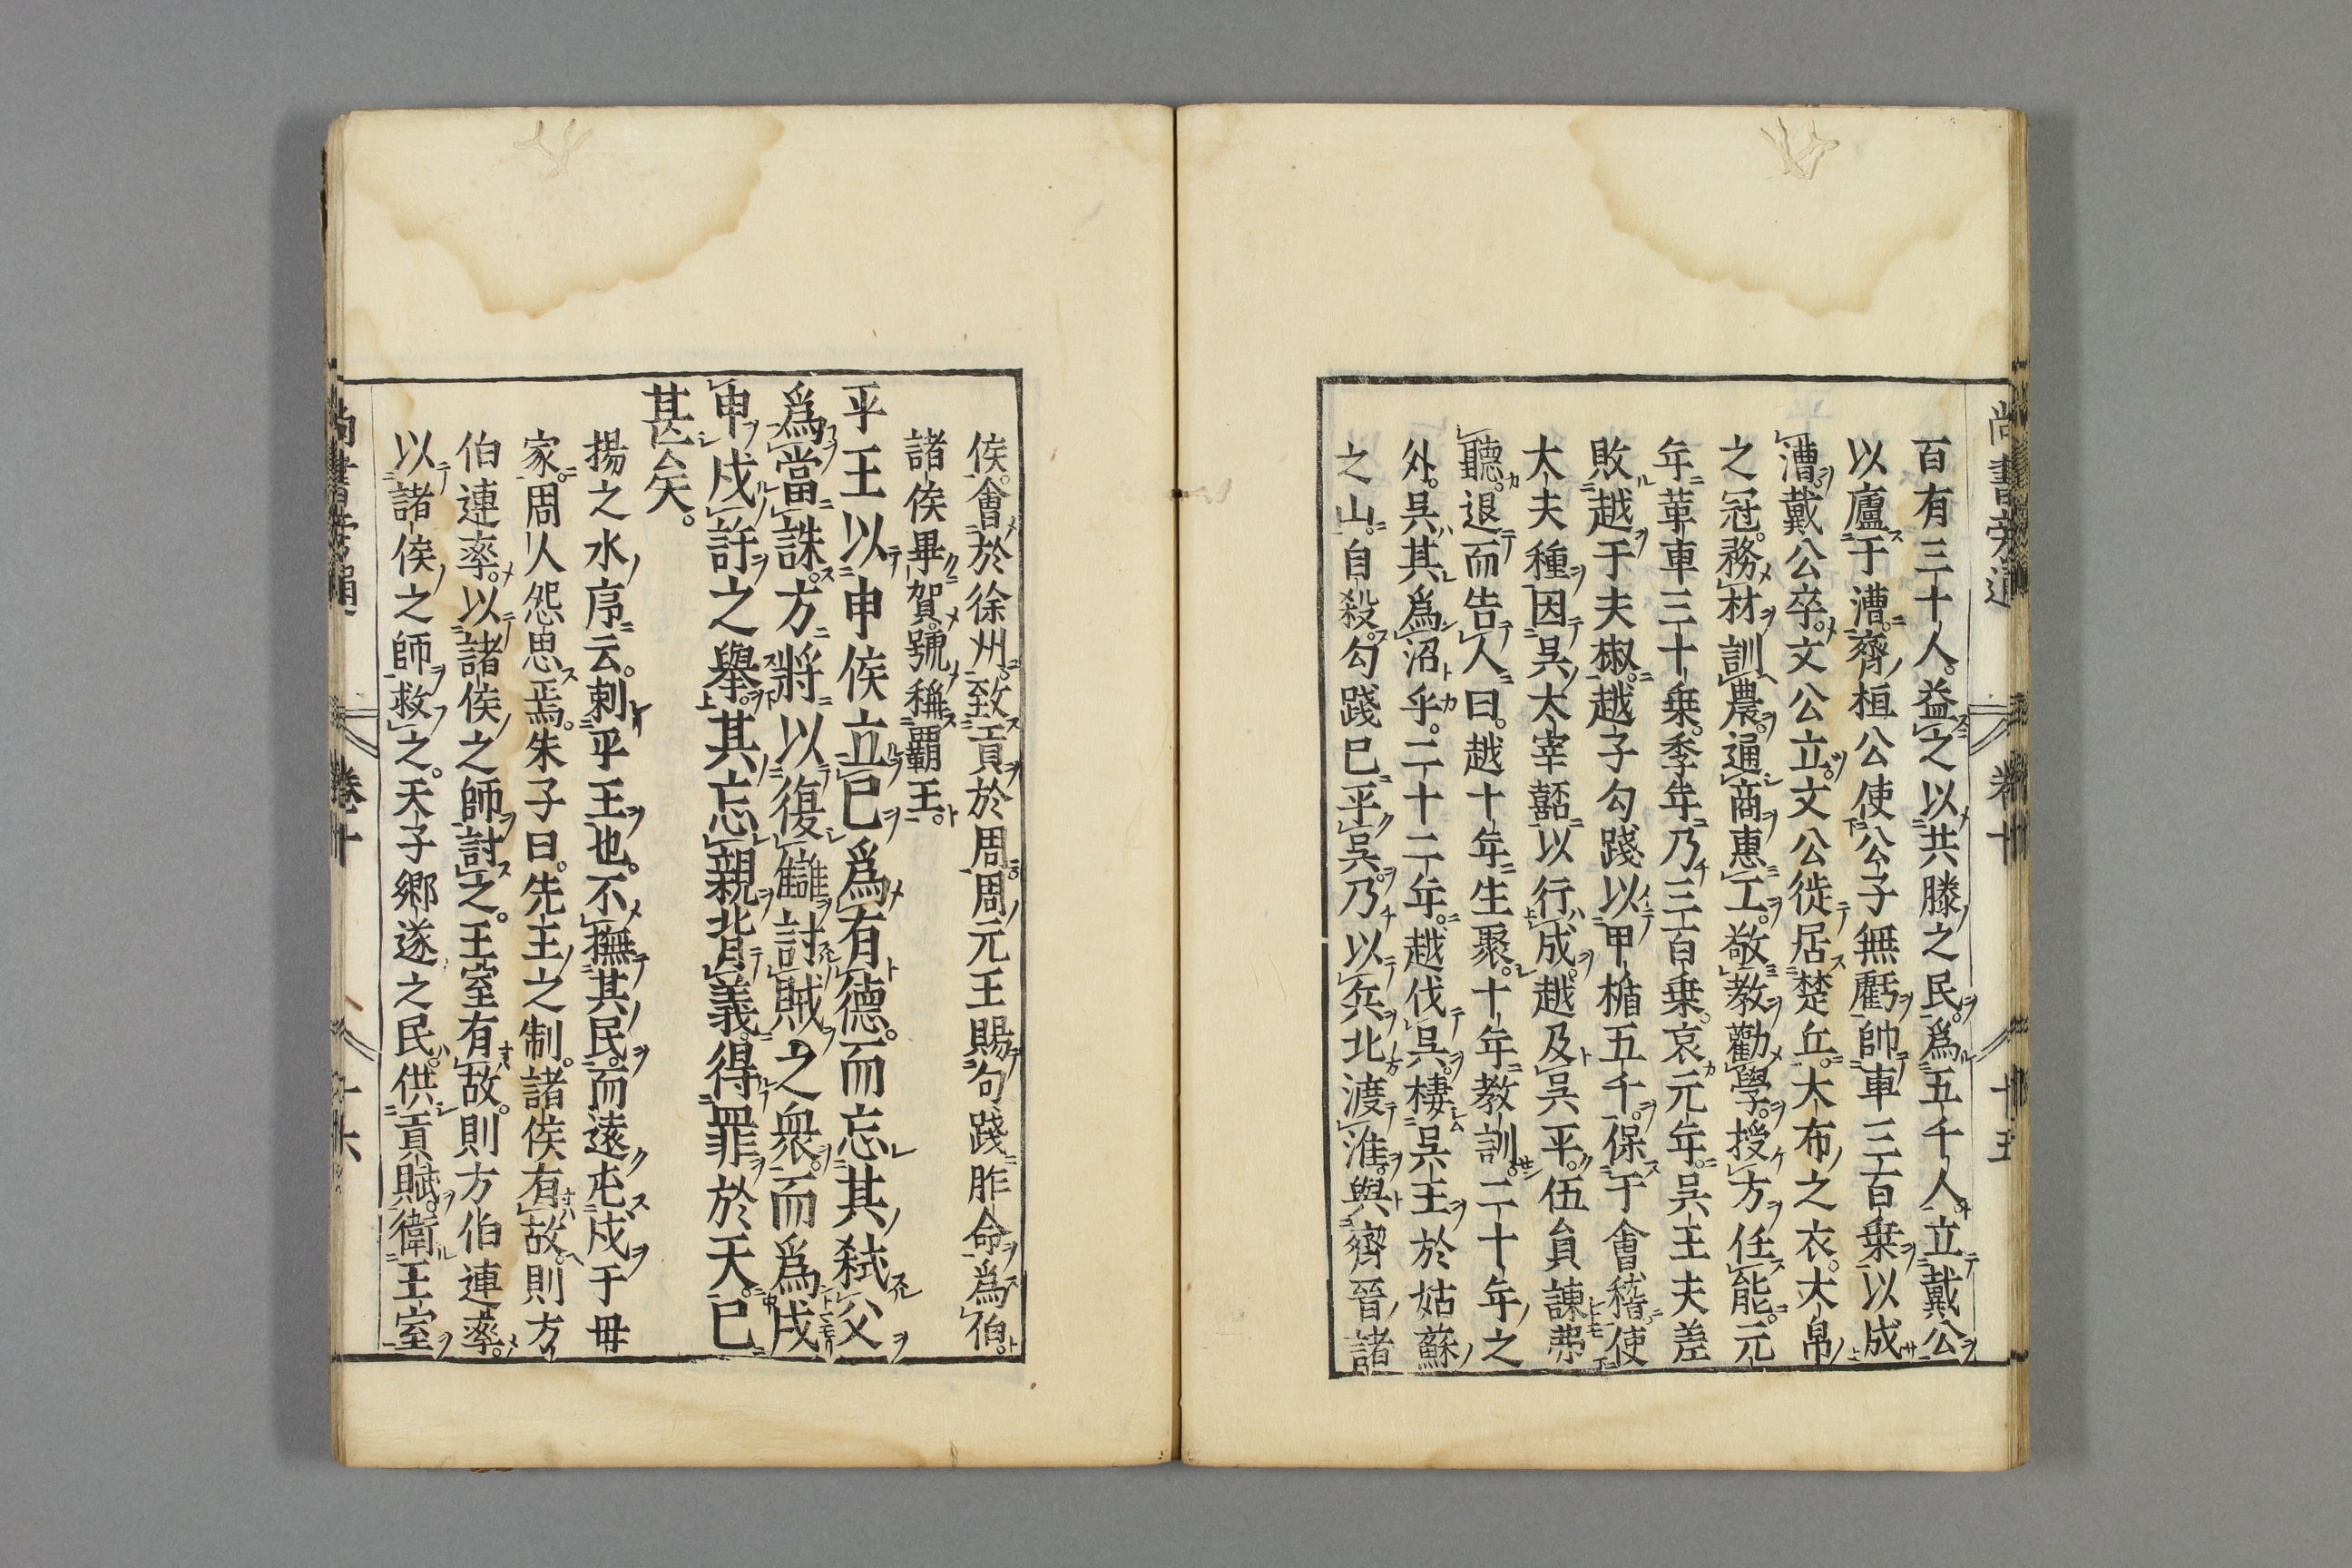 尚書旁通 卷十 十五
百有三十人。益之以共滕之民。爲五千人。立戴公
以廬于漕。齊桓公使公子無虧帥車三百乗以成
漕。戴公卒。文公立。文公徙居楚丘。大布之衣。大帛
之冠。務材訓農。通商惠工。敬教勸學。授方任能。元
年革車三十乗。季年乃三百乗。哀元年。吳王夫差
敗越于夫椒。越子勾踐以甲楯五千。保于會稽。使
大夫種因吳大宰嚭以行成。越及吳平。伍員諫弗
聽。退而告人曰。越十年生聚。十年教訓。二十年之
外。吳其爲沼乎。二十二年。越伐吳。棲吳王於姑蘇
之山。自殺。勾踐已平吳。乃以兵北渡淮。與齊晉諸
侯會於徐州。致貢於周。周元王賜句踐胙。命爲伯。
諸侯畢賀。號稱覇王。
平王以申侯立已爲有德。而忘其弑父
爲當誅。方將以復讎討賊之衆。而爲戍
申戍許之舉。其忘親背義。得罪於天。已
甚矣。
揚之水序云。刺平王也。不撫其民。而遠屯戍于毋
家。周人怨思焉。朱子曰。先王之制。諸侯有故。則方
伯連率。以諸侯之師討之。王室有故。則方伯連率。
以諸侯之師救之。天子鄉遂之民。供貢賦。衛王室
卷十 十六